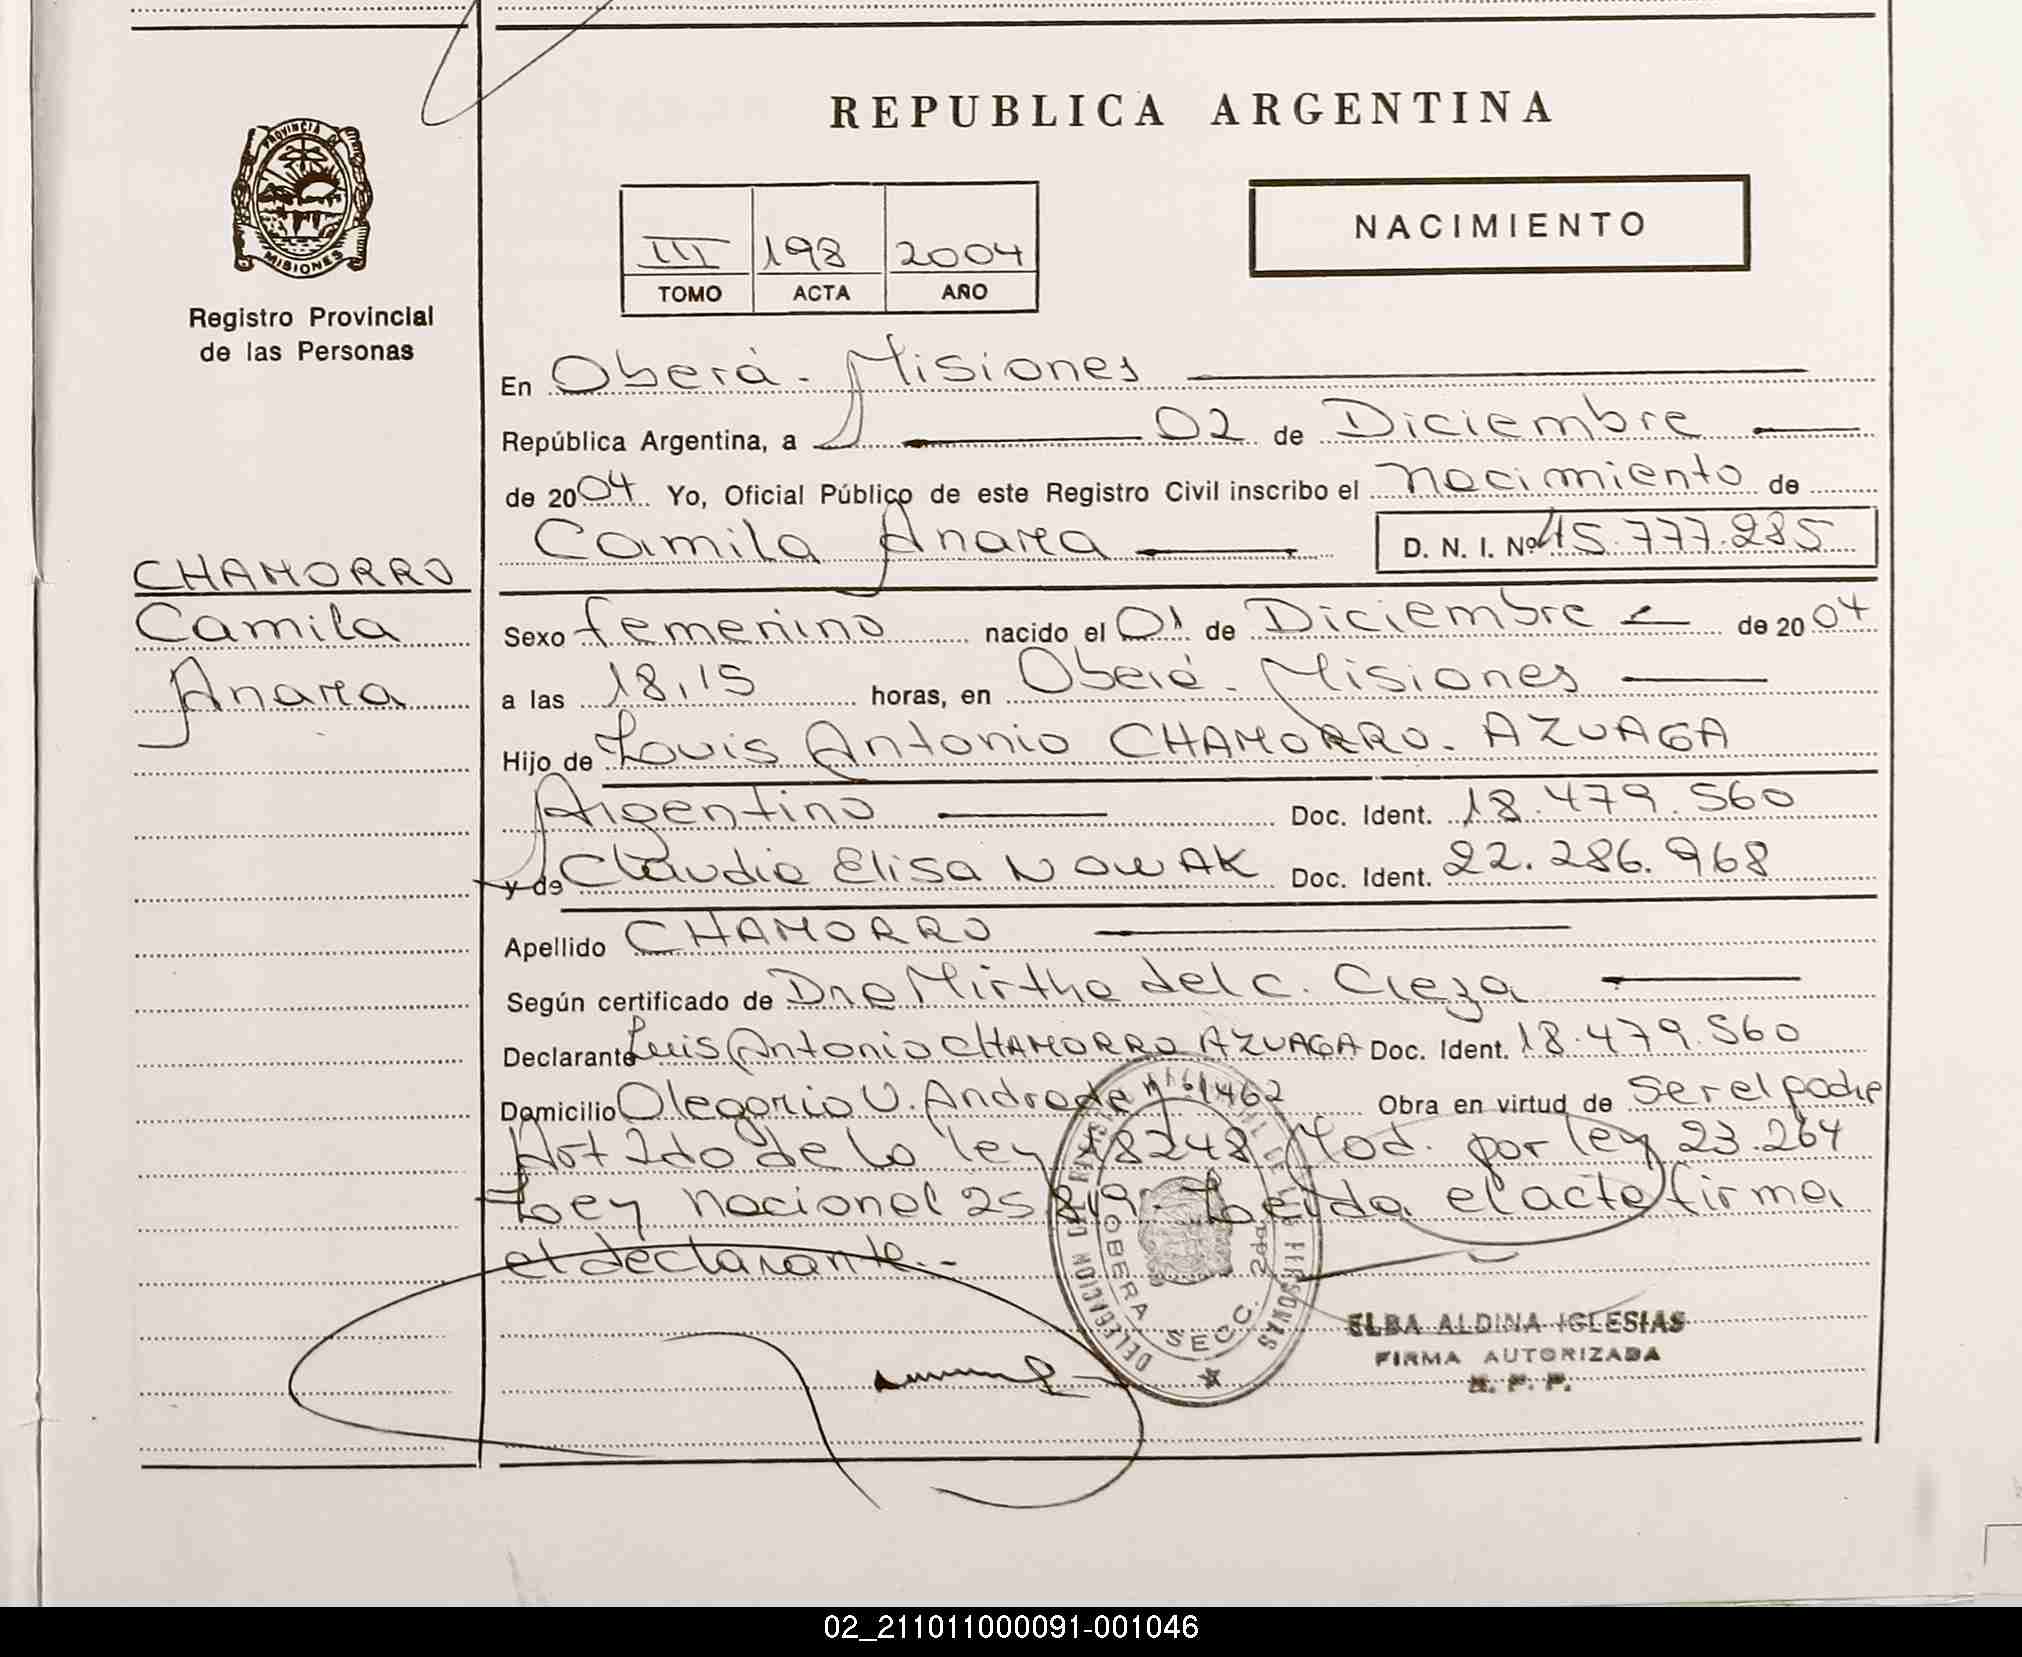 REPUBLICA ARGENTINA
PROVINCIA DE
MISIONES
Registro Provincial
de las Personas
III 198 2004
TOMO ACTA AÑO
NACIMIENTO
En Oberá - Misiones
República Argentina, a 02 de Diciembre
de 2004 Yo, Oficial Público de este Registro Civil inscribo el nacimiento de
Camila Anara D. N. I. Nº 45.777.285
CHAMORRO
Camila
Anara
Sexo femenino nacido el 01 de Diciembre de 2004
a las 18,15 horas, en Oberá - Misiones
Hijo de Louis Antonio CHAMORRO. AZUAGA
Argentino Doc. Ident. 18.479.560
y de Claudia Elisa NOWAK Doc. Ident. 22.286.968
Apellido CHAMORRO
Según certificado de Dra Mirtha del C. Cieza
Declarante Luis Antonio CHAMORRO AZUAGA Doc. Ident. 18.479.560
Domicilio Olegario V. Andrade nº 1462 Obra en virtud de ser el padre
Art 2do de la ley 18248 Mod. por ley 23.264
Ley nacional 25819. Leida el acta firma
el declarante.-
DELEGACION DEL REGISTRO PROVINCIAL DE LAS PERSONAS
OBERA SECC. 2da
ELBA ALDINA IGLESIAS
FIRMA AUTORIZADA
R. P. P.
02_211011000091-001046